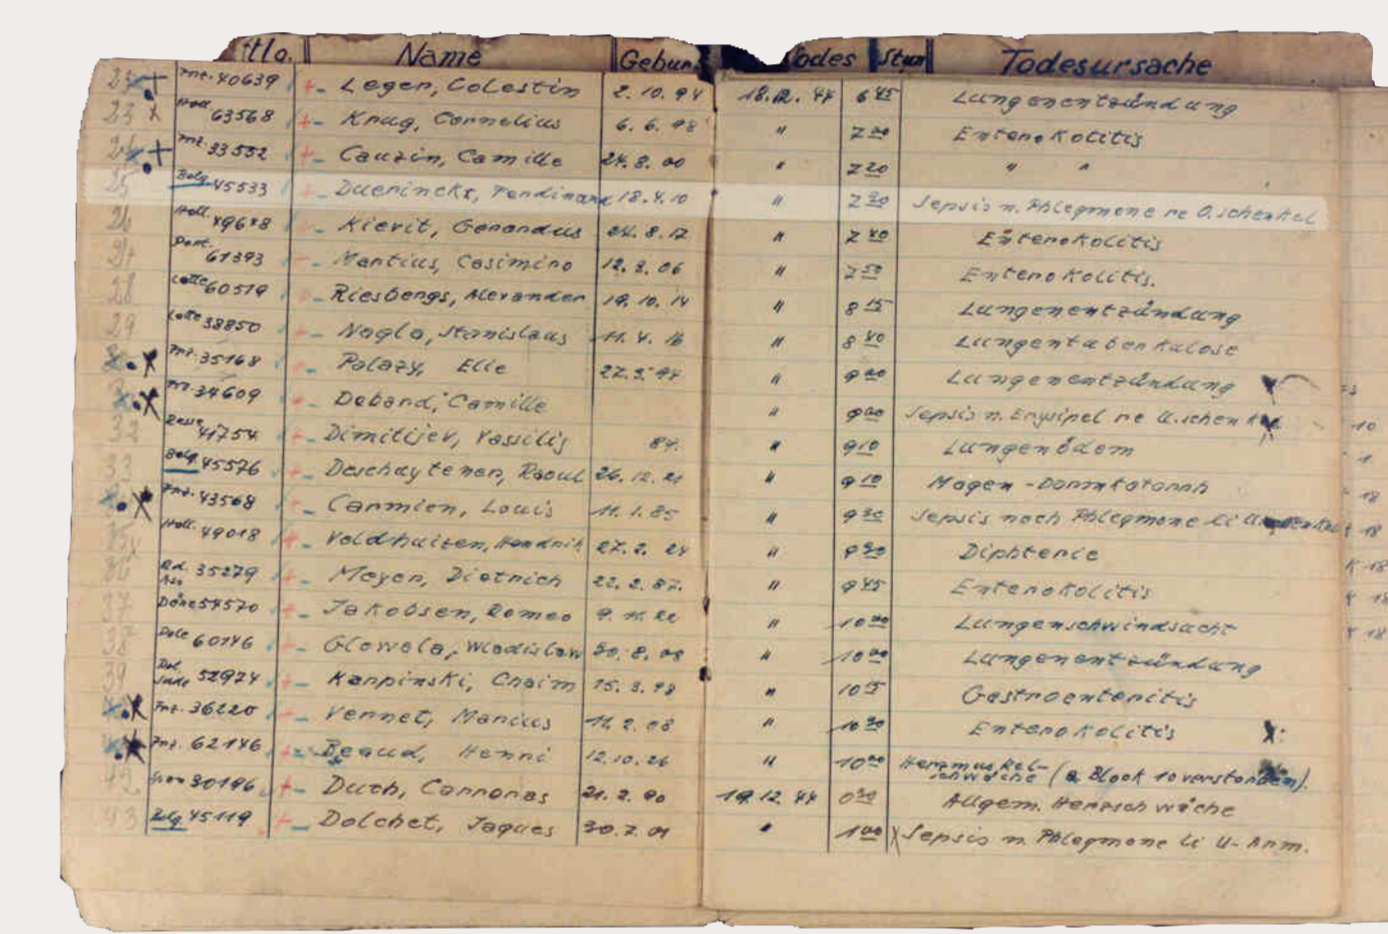 Name Gebur Todes Stun Todesursache
Frz. 40639 Leger, Colestin 2. 10. 94 18.12. 44 6 45 Lungenentzündung
23 Holl. 63568 Krug, Cornelius 6. 6. 98 " 7 00 Enterokolitis
Frz. 33552 Cauzin, Camille 24. 8. 00 " 7 20 " "
25 Belg. 45533 Duerincks, Ferdinand 18. 4. 10 " 7 30 Sepsis n. Phlegmone re O.schenkel
26 Holl. 49648 Kievit, Gerardus 24. 8. 12 " 7 40 Enterokolitis
61393 Martius, Casimino 12. 3. 06 " 7 50 Enterokolitis.
28 Lotte 60519 Riesbergs, Alexander 19. 10. 14 " 8 15 Lungenentzündung
29 Lotte 38850 Nogla, Stanislaus 11. 4. 16 " 8 40 Lungentuberkulose
Frz. 35168 Palazy, Elie " 9 00 Lungenentzündung
Fr. 34609 Debard, Camille " 9 00 Sepsis n. Erysipel re U.schenkel
32 Russe 41754 Dimitijev, Vassilis 84. " 9 10 Lungenödem
33 Belg. 45576 Deschuytener, Raoul 26. 12. 21 " 9 10 Magen - Darmkatarrh
Frz. 43568 Carmien, Louis 11. 1. 85 " 9 30 Sepsis nach Phlegmone li
35 Holl. 49018 Veldhuizen, Hendrik 27. 2. 24 " 9 30 Diphterie
36 35279 Meyer, Dietrich 22. 2. 87. " 9 45 Enterokolitis
37 Däne 54570 Jakobsen, Romeo 9. 11. 20 " 10 00 Lungenschwindsucht
38 Pole 60146 Glowala, Wladislaw 30. 8. 08 " 10 00 Lungenentzündung
39 Pol. Jude 52974 Karpinski, Chaim 15. 3. 98 " 10 15 Gastroenteritis
Frz. 36220 Vernet, Marius 11. 2. 08 " 10 30 Enterokolitis
Frz. 62146 Beaud, Henri 12. 10. 26 " 10 00 Herzmuskel-schwäche (a. Block 10 verstorben).
42 30196 Duch, Carreras 21. 2. 90 19. 12. 44 0 30 Allgem. Herzschwäche
43 Blg 45119 Dolchet, Jaques 30. 7. 01 " 1 00 Sepsis n. Phlegmone li U-Arm.